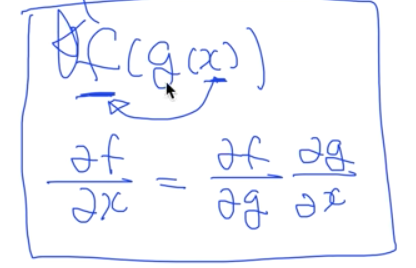 f(g(x))
∂f/∂x = ∂f/∂g ∂g/∂x